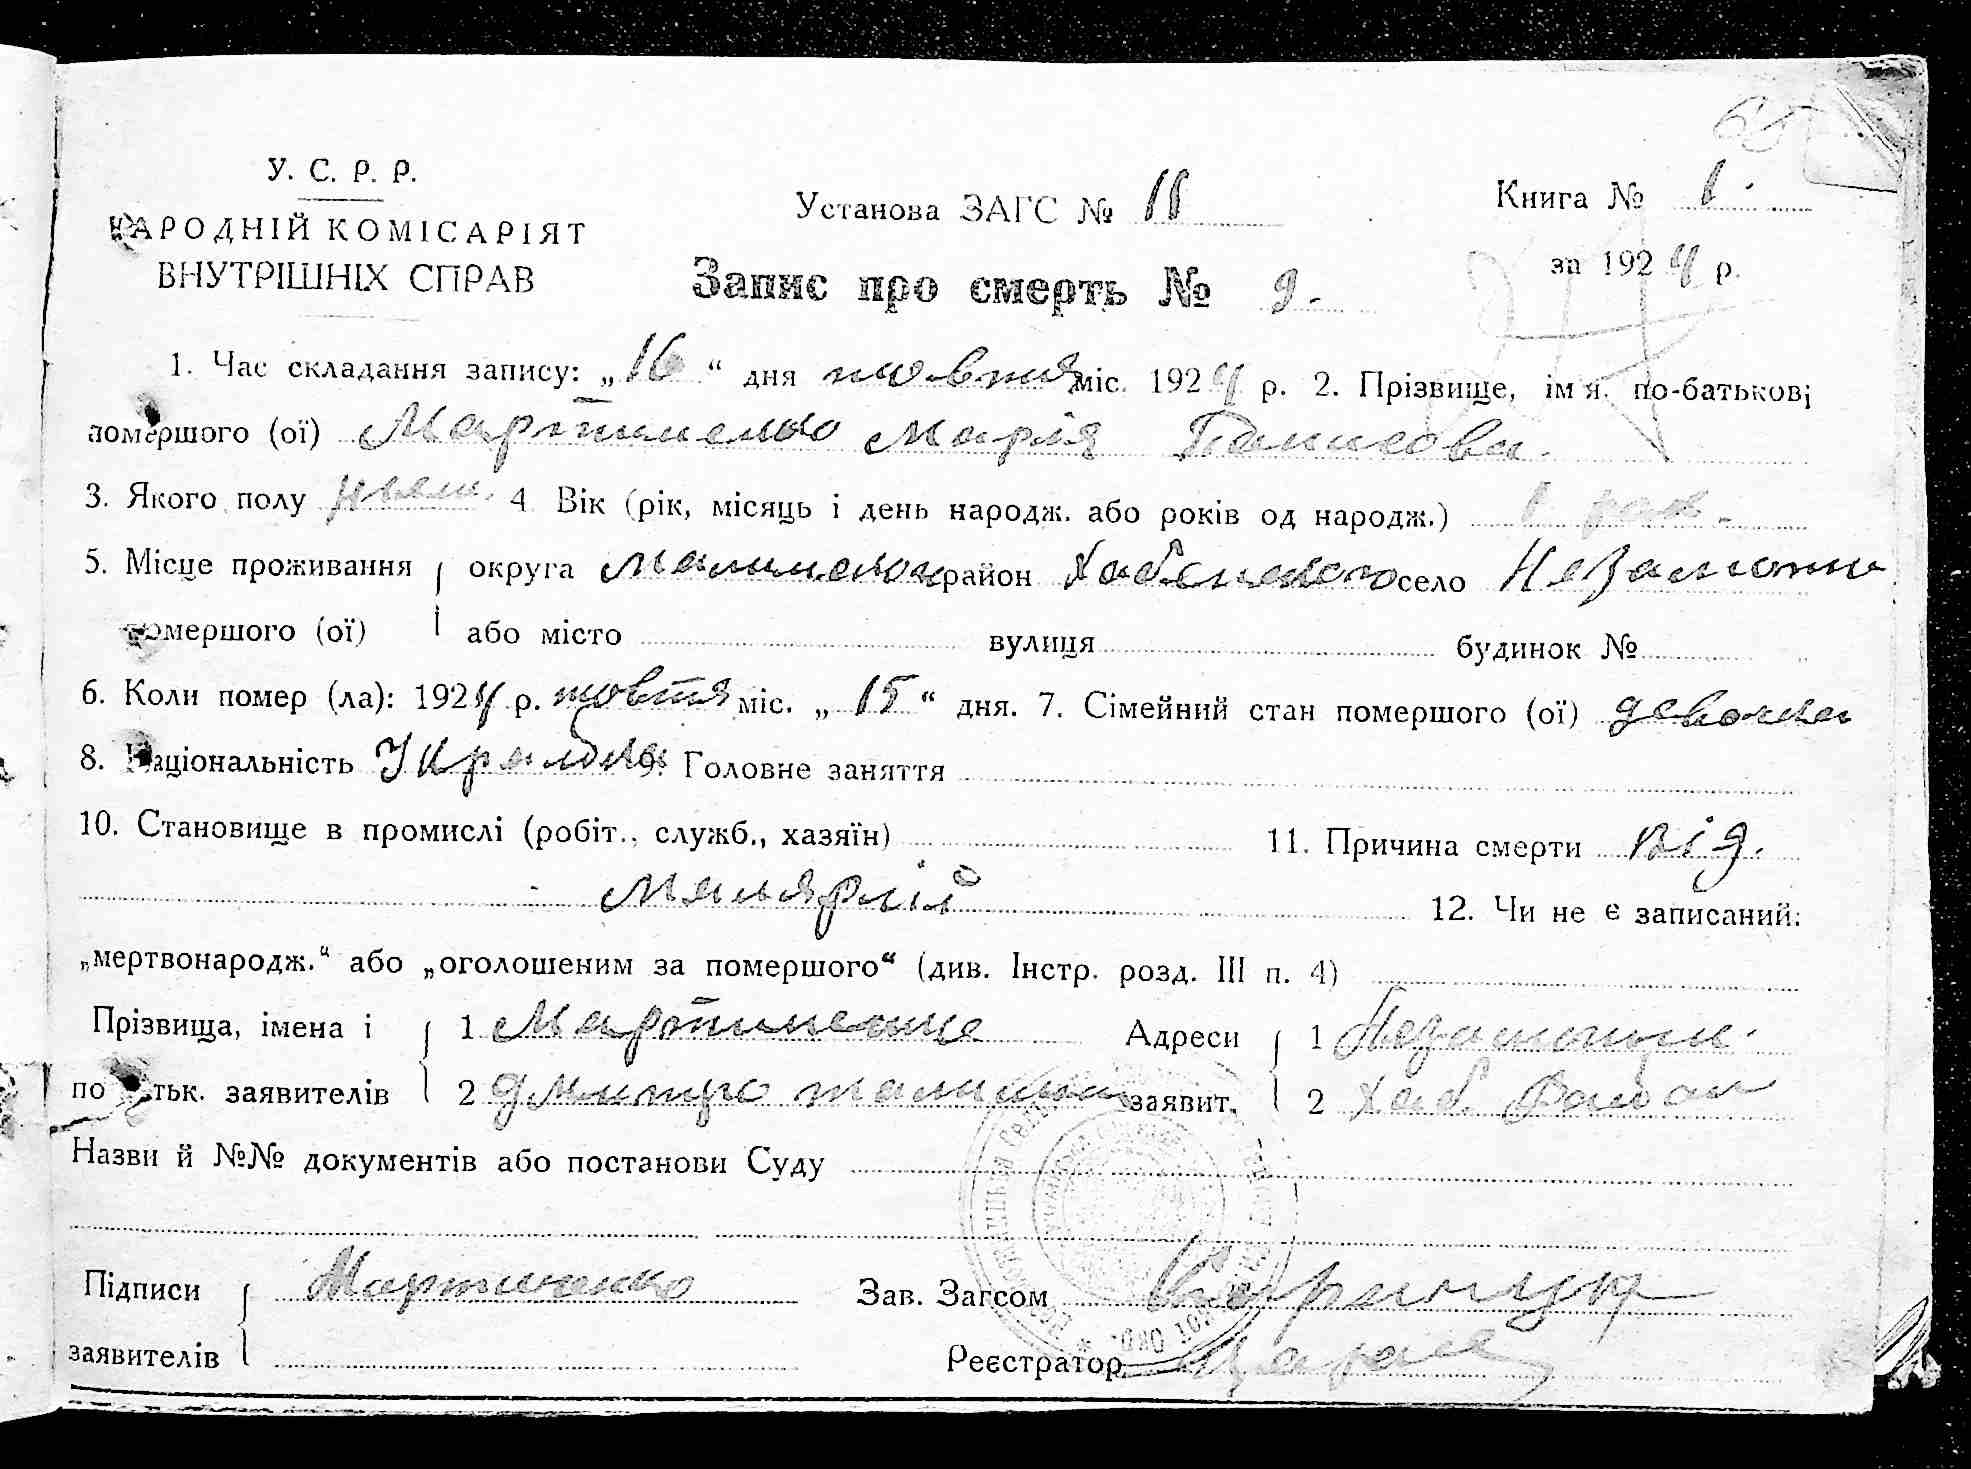 65
У. С. Р. Р.
НАРОДНІЙ КОМІСАРІЯТ
ВНУТРІШНІХ СПРАВ
Установа ЗАГС № 11
Книга № 1.
за 1924 р.
Запис про смерть № 9.
1. Час складання запису: „16“ дня жовтня міс. 1924 р. 2. Прізвище, імя, по-батькові
помершого (ої) Мартиненко Марія
3. Якого полу 4. Вік (рік, місяць і день народж. або років од народж.) 1 рок.
5. Місце проживання округа район село
помершого (ої) або місто вулиця будинок №
6. Коли помер (ла): 1924 р. жовтня міс. „15“ дня. 7. Сімейний стан помершого (ої) девочка
8. Національність 9. Головне заняття
10. Становище в промислі (робіт., служб., хазяїн) 11. Причина смерти від.
12. Чи не є записаний:
„мертвонародж.“ або „оголошеним за помершого“ (див. Інстр. розд. III п. 4)
Прізвища, імена і 1 Мартиненко Адреси 1
по батьк. заявителів 2 Дмитро заявит. 2 Хаб. Району
Назви й №№ документів або постанови Суду
Підписи Мартиненко Зав. Загсом
заявителів Реєстратор